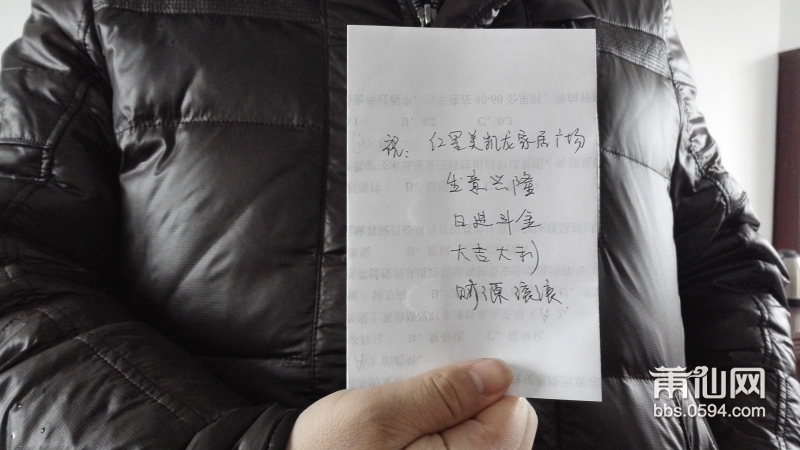 祝：红星美凯龙家居广场
生意兴隆
日进斗金
大吉大利
财源滚滚
莆仙网
bbs.0594.com